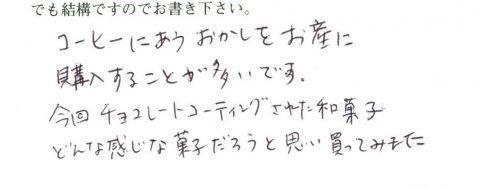 でも結構ですのでお書き下さい。
コーヒーにあう おかしを お産に
購入することが多いです。
今回 チョコレートコーティングされた和菓子
どんな感じな菓子だろうと思い買ってみました